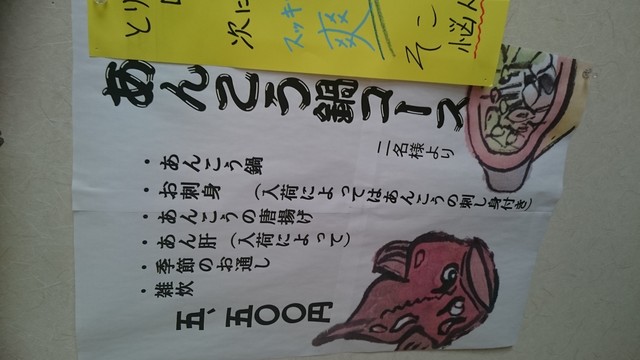 とり
次に
スッキ
爽
そこ
悩人
あんこう鍋コース
二名様より
・あんこう鍋
・お刺身（入荷によってはあんこうの刺し身付き）
・あんこうの唐揚げ
・あん肝（入荷によって）
・季節のお通し
・雑炊
五、五〇〇円